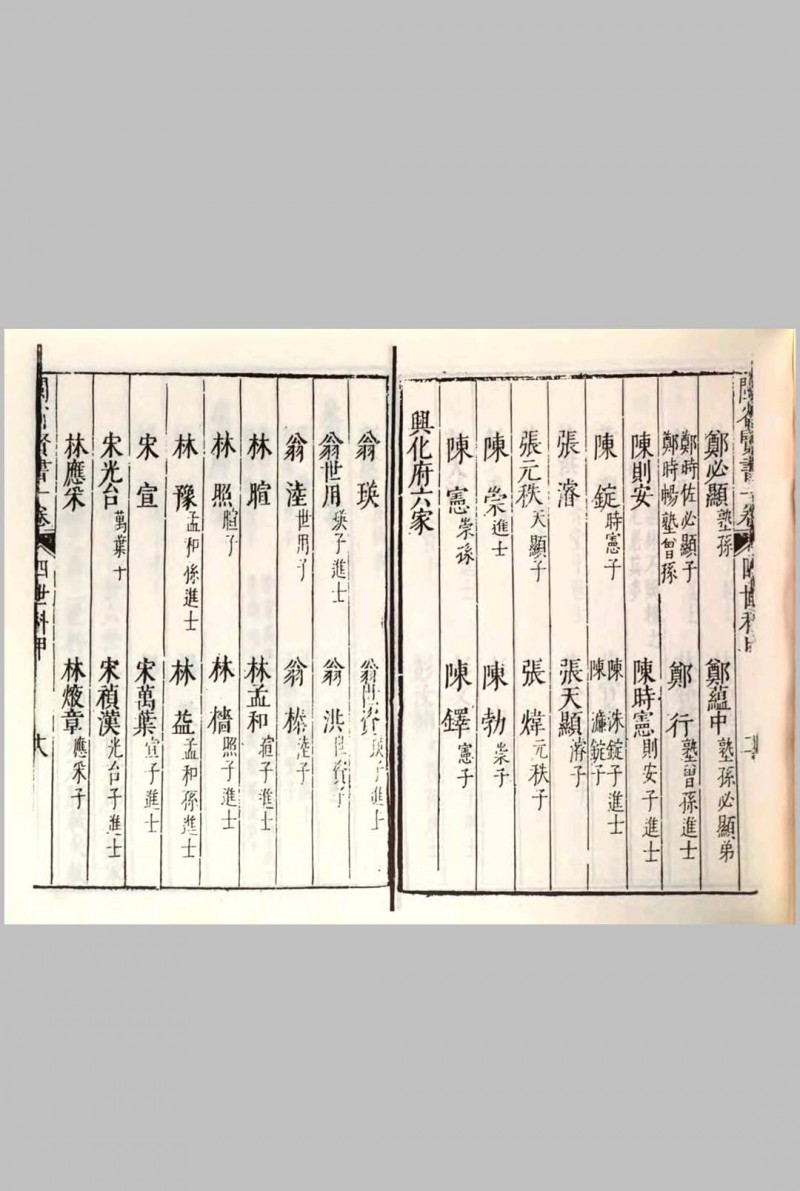 閩省賢書 卷 四世科甲
鄭必顯塾孫 鄭蘊中塾孫必顯弟
鄭時佐必顯子 鄭時暢塾曾孫 鄭行塾曾孫進士
陳則安 陳時憲則安子進士
陳錠時憲子 陳洙錠子進士 陳濂錠子
張濬 張天顯濬子
張元秩天顯子 張煒元秩子
陳崇進士 陳勃崇子
陳憲崇孫 陳鐸憲子
興化府六家
翁瑛 翁世資瑛子進士
翁世用瑛子進士 翁洪世資子
翁逵世用子 翁榛逵子
林暄 林孟和暄子進士
林照暄子 林檣照子進士
林豫孟和孫進士 林益孟和孫進士
宋宣 宋萬葉宣子進士
宋光台萬葉子 宋禎漢光台子進士
林應采 林焌章應采子
閩省賢書 卷 四世科甲